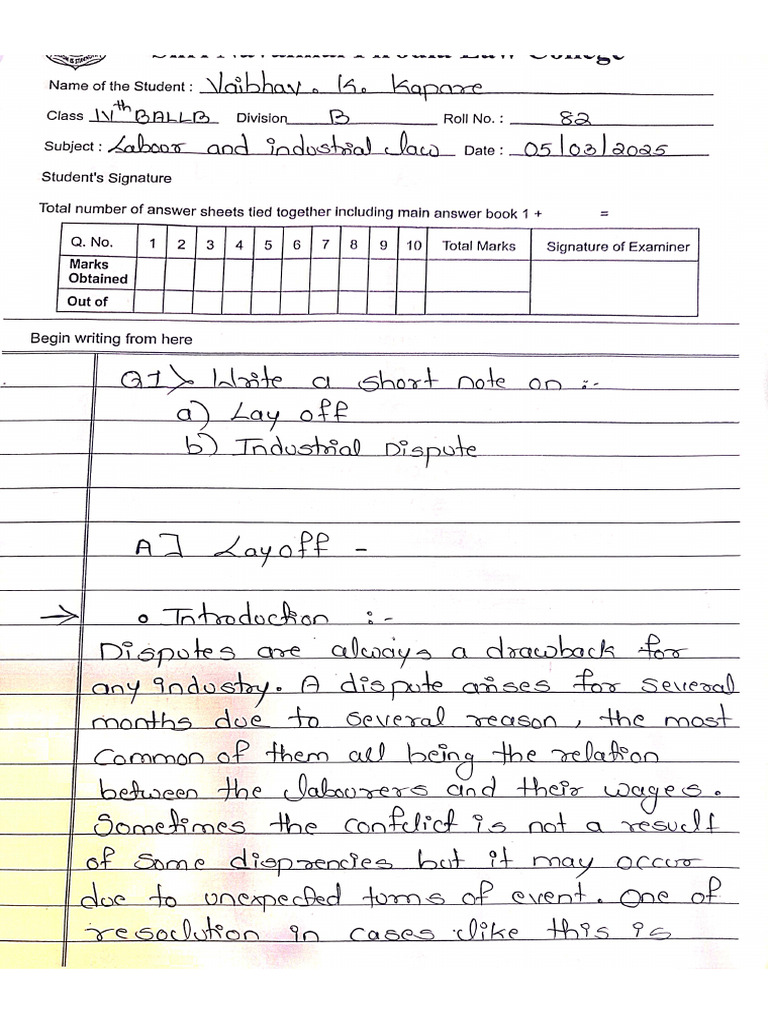 Law College
Name of the Student : Vaibhav. K. Kapare
Class IVth BALLB Division B Roll No. : 82
Subject : Labour and industrial law Date : 05/03/2025
Student's Signature
Total number of answer sheets tied together including main answer book 1 + =
Q. No. 1 2 3 4 5 6 7 8 9 10 Total Marks Signature of Examiner
Marks
Obtained
Out of
Begin writing from here
Q1> Write a short note on :-
a) Lay off
b) Industrial Dispute
A] Layoff -
→ • Introduction :-
Disputes are always a drawback for
any industry. A dispute arises for several
months due to several reason, the most
common of them all being the relation
between the labourers and their wages.
Sometimes the conflict is not a result
of some disprencies but it may occur
due to unexpected turns of event. One of
resolution in cases like this is